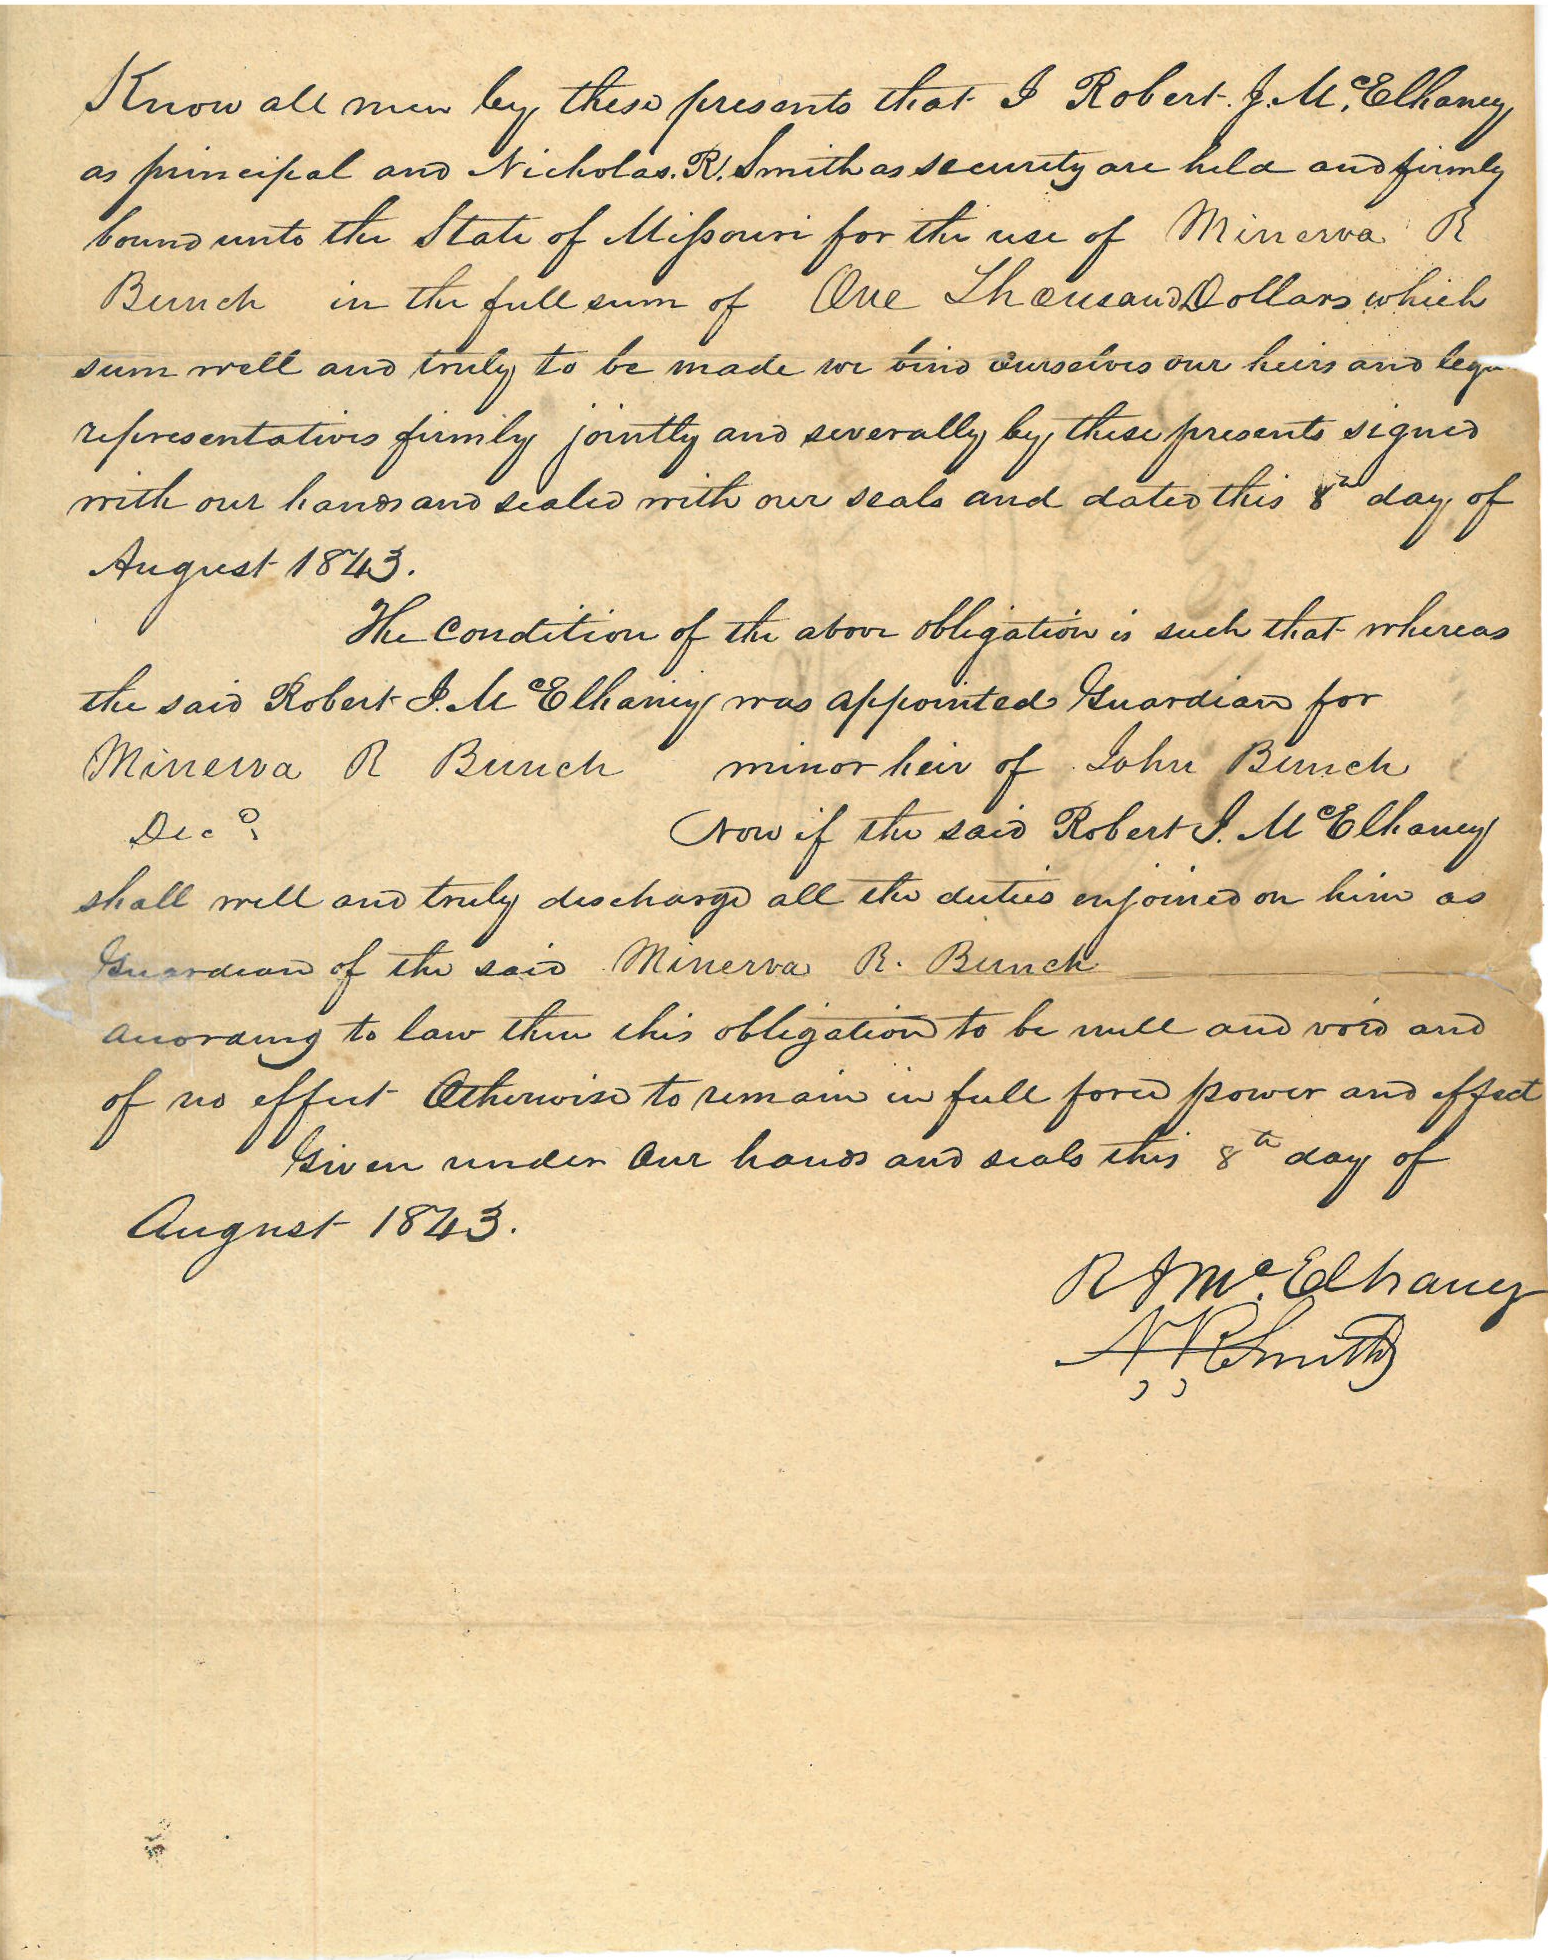 Know all men by these presents that I Robert. J. McElhaney
as principal and Nicholas. R. Smith as security are held and firmly
bound unto the State of Missouri for the use of Minerva R
Bunch in the full sum of One Thousand Dollars which
sum well and truly to be made we bind ourselves our heirs and legal
representatives firmly jointly and severally by these presents signed
with our hands and sealed with our seals and dated this 8th day of
August 1843.
The Condition of the above obligation is such that whereas
the said Robert J. McElhaney was appointed Guardian for
Minerva R Bunch minor heir of John Bunch
Decd.
Now if the said Robert J. McElhaney
shall well and truly discharge all the duties enjoined on him as
Guardian of the said Minerva R. Bunch
according to law then this obligation to be null and void and
of no effect Otherwise to remain in full force power and effect
Given under our hands and seals this 8th day of
August 1843.
R J Mc.Elhaney
N. R. Smith